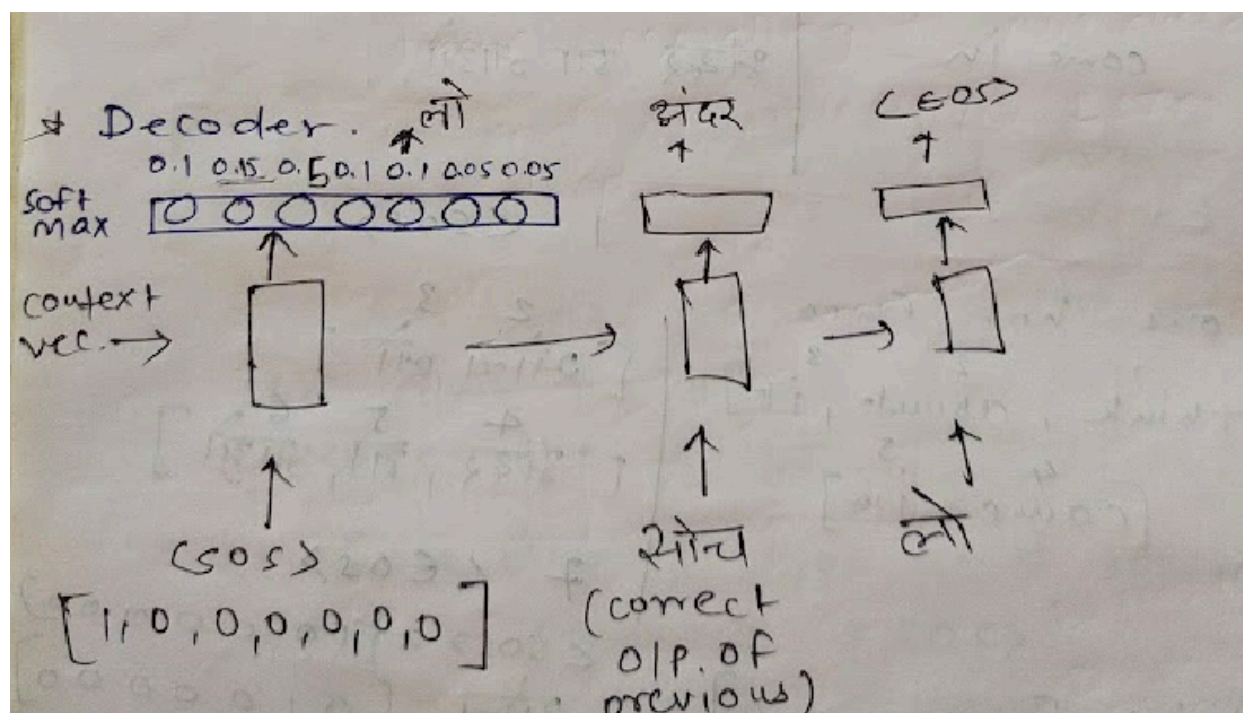 * Decoder. लो अंदर <EOS>
0.1 0.15 0.5 0.1 0.1 0.05 0.05
soft
max
context
vec. →
<SOS> सोच लो
[1, 0, 0, 0, 0, 0, 0] (correct
o/p. of
previous)